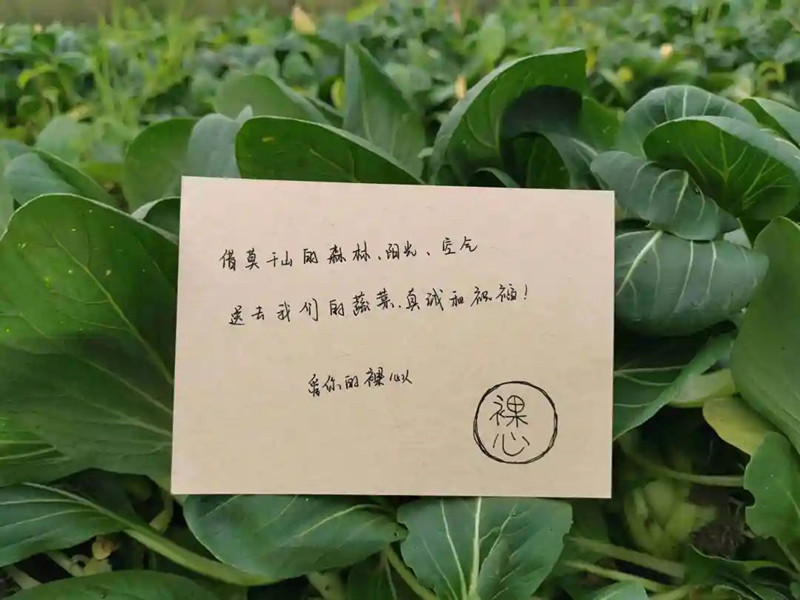 借莫干山的森林、阳光、空气
送去我们的蔬菜、真诚和祝福!
爱你的裸心人
裸
心